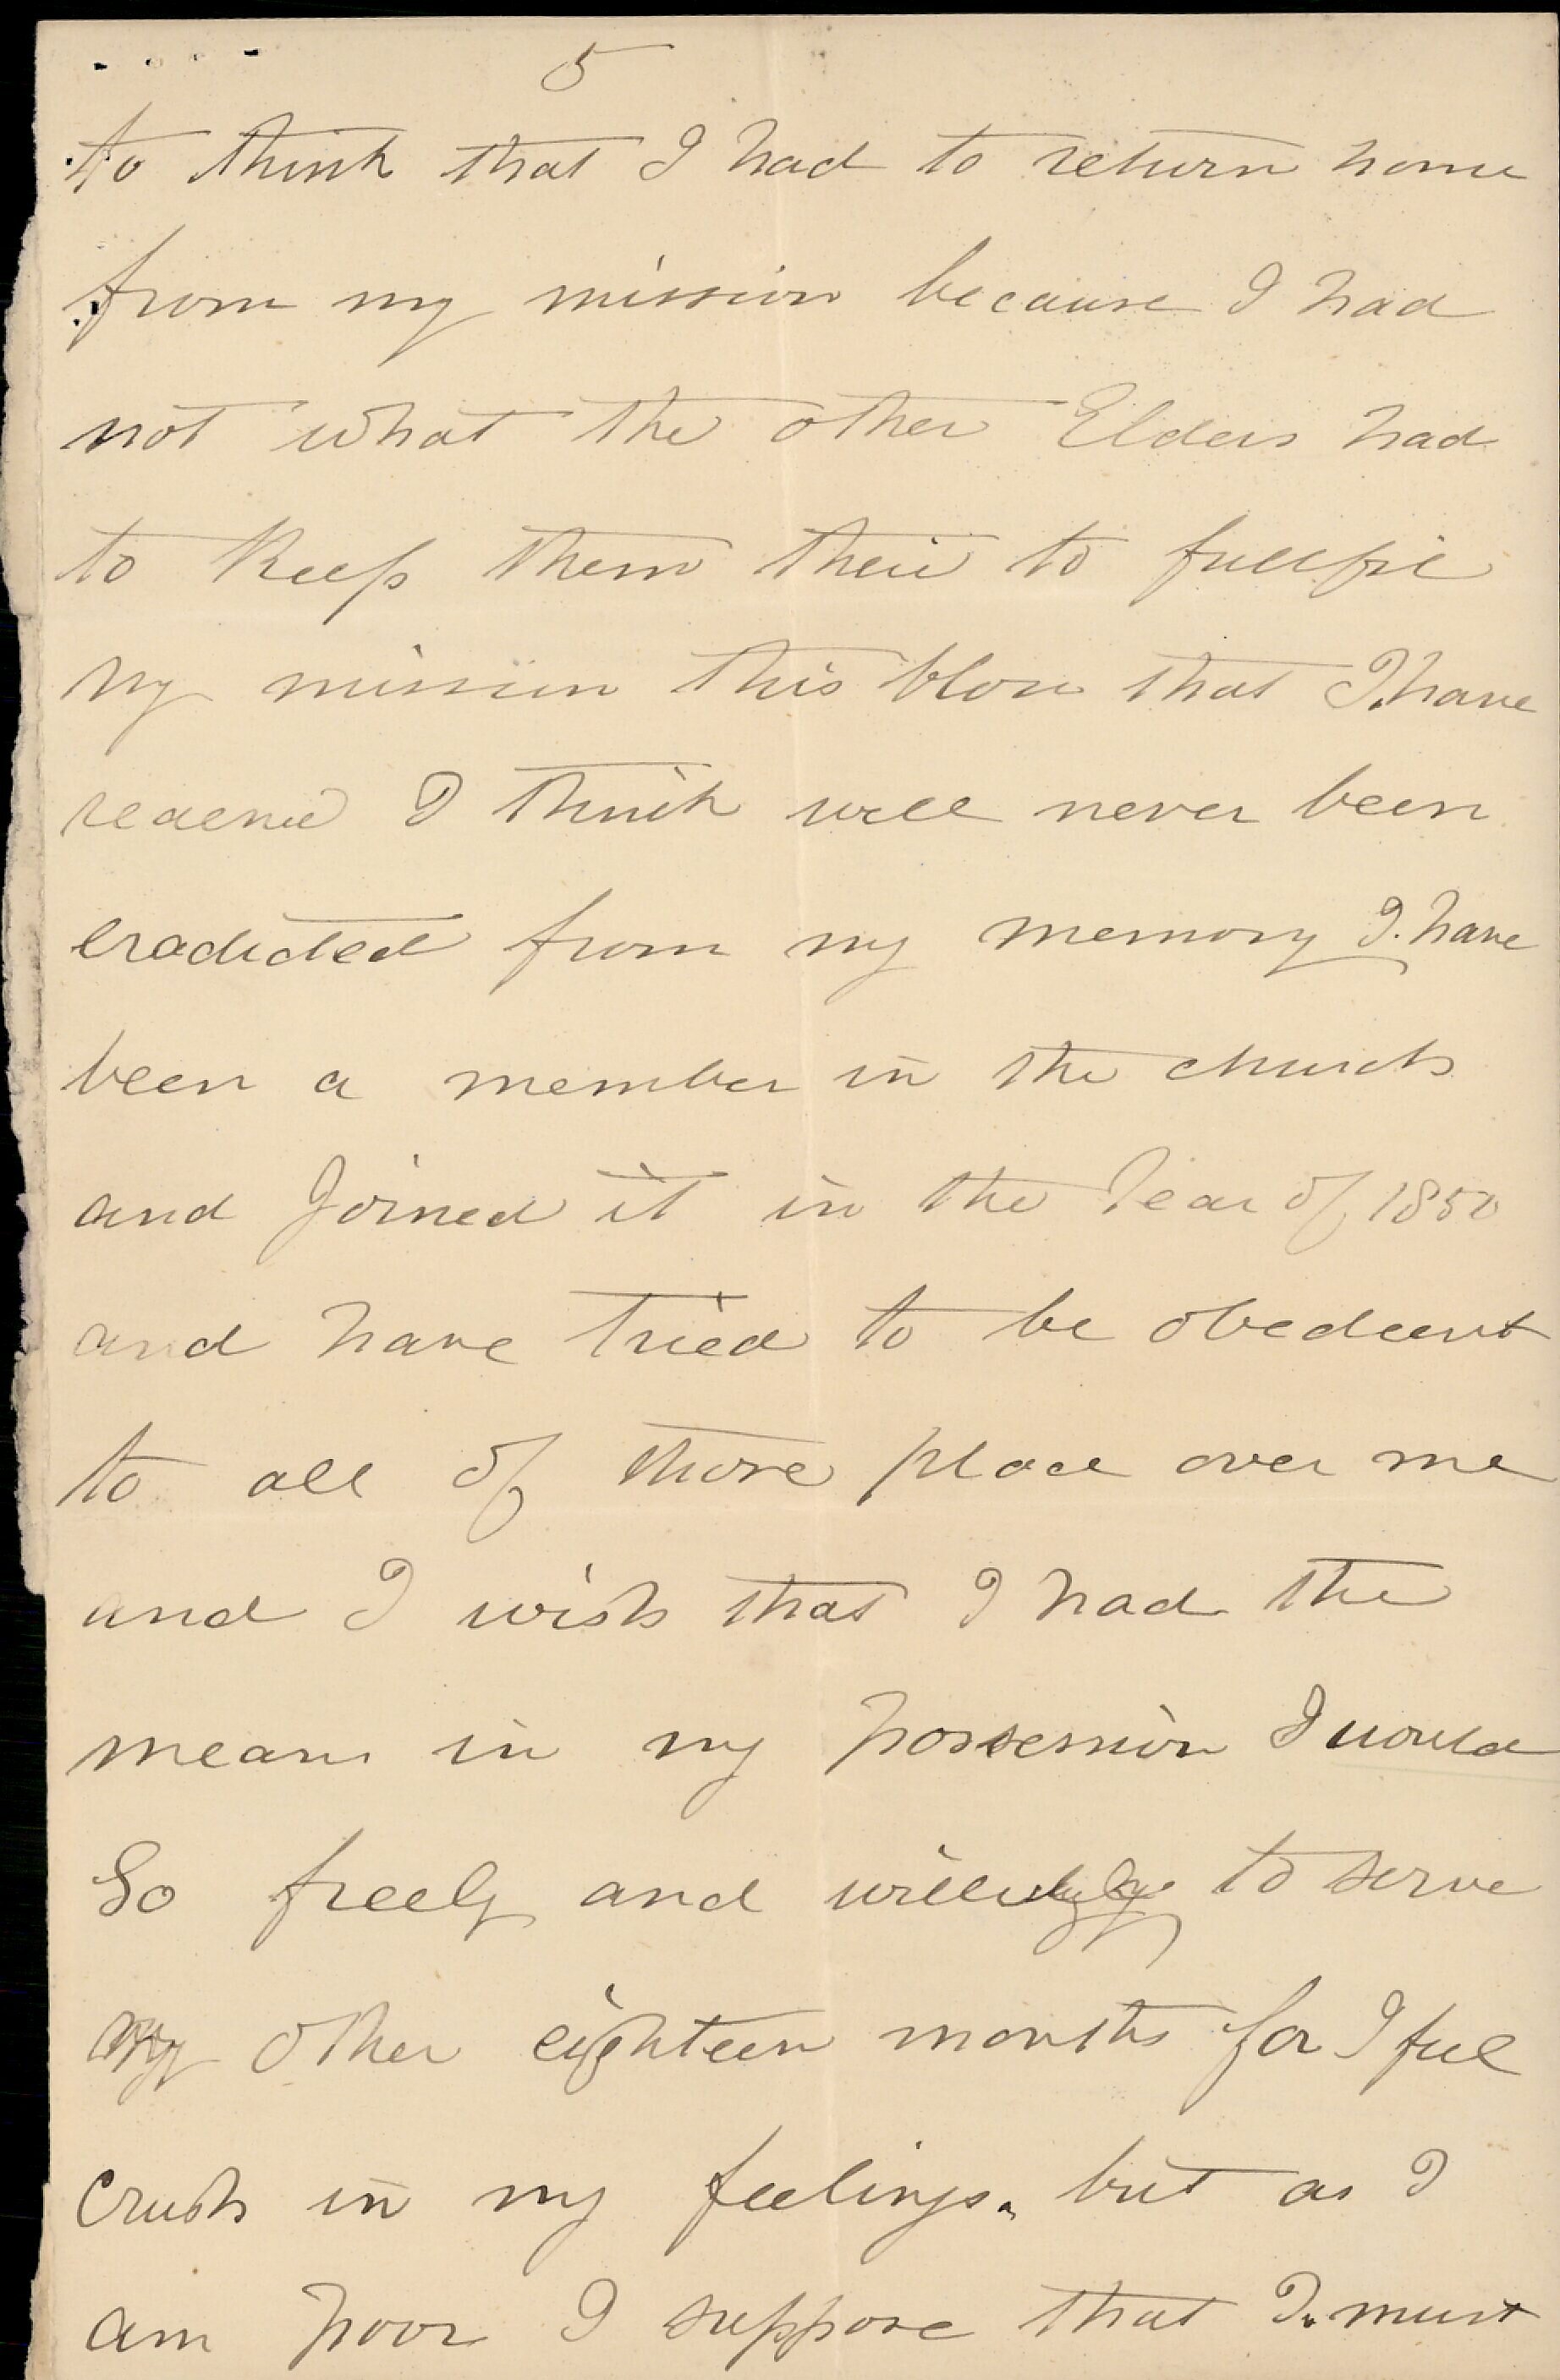 5
to think that I had to return home
from my mission because I had
not what the other Elders had
to Keep them their to fullfil
my mission this blow that I have
receved I think will never been
eradicted from my memory I. have
been a member in the church
and Joined it in the Year of 1850
and have tried to be obedeent
to all of those place over me
and I wish that I had the
means in my possession I would
So freely and willingly to serve
my other eighteen months for I feel
Crush in my feelings. but as I
am poor I suppose that I must